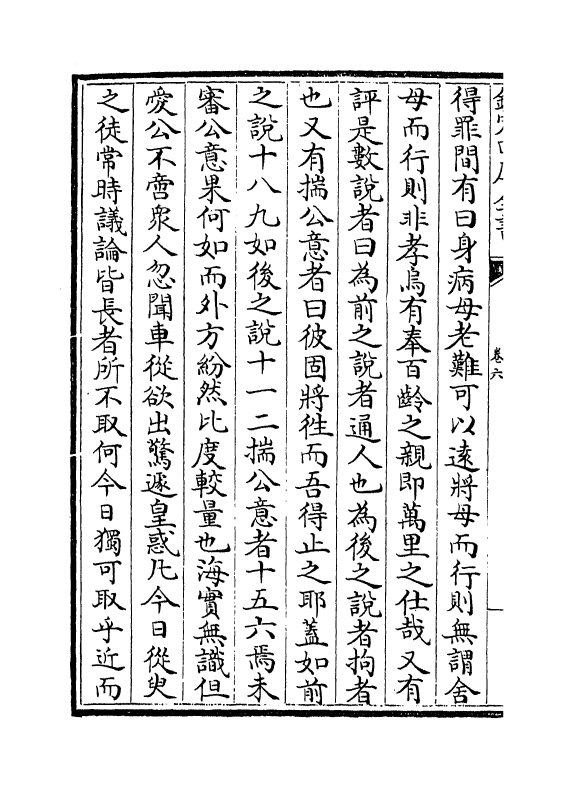 欽定四庫全書
卷六
得罪間有曰身病母老難可以逺將母而行則無謂舍
母而行則非孝烏有奉百齡之親即萬里之仕哉又有
評是數說者曰為前之說者通人也為後之說者拘者
也又有揣公意者曰彼固將徃而吾得止之耶蓋如前
之說十八九如後之說十一二揣公意者十五六焉未
審公意果何如而外方紛然比度較量也海實無識但
愛公不啻衆人忽聞車從欲出驚遽皇惑凡今日從臾
之徒常時議論皆長者所不取何今日獨可取乎近而